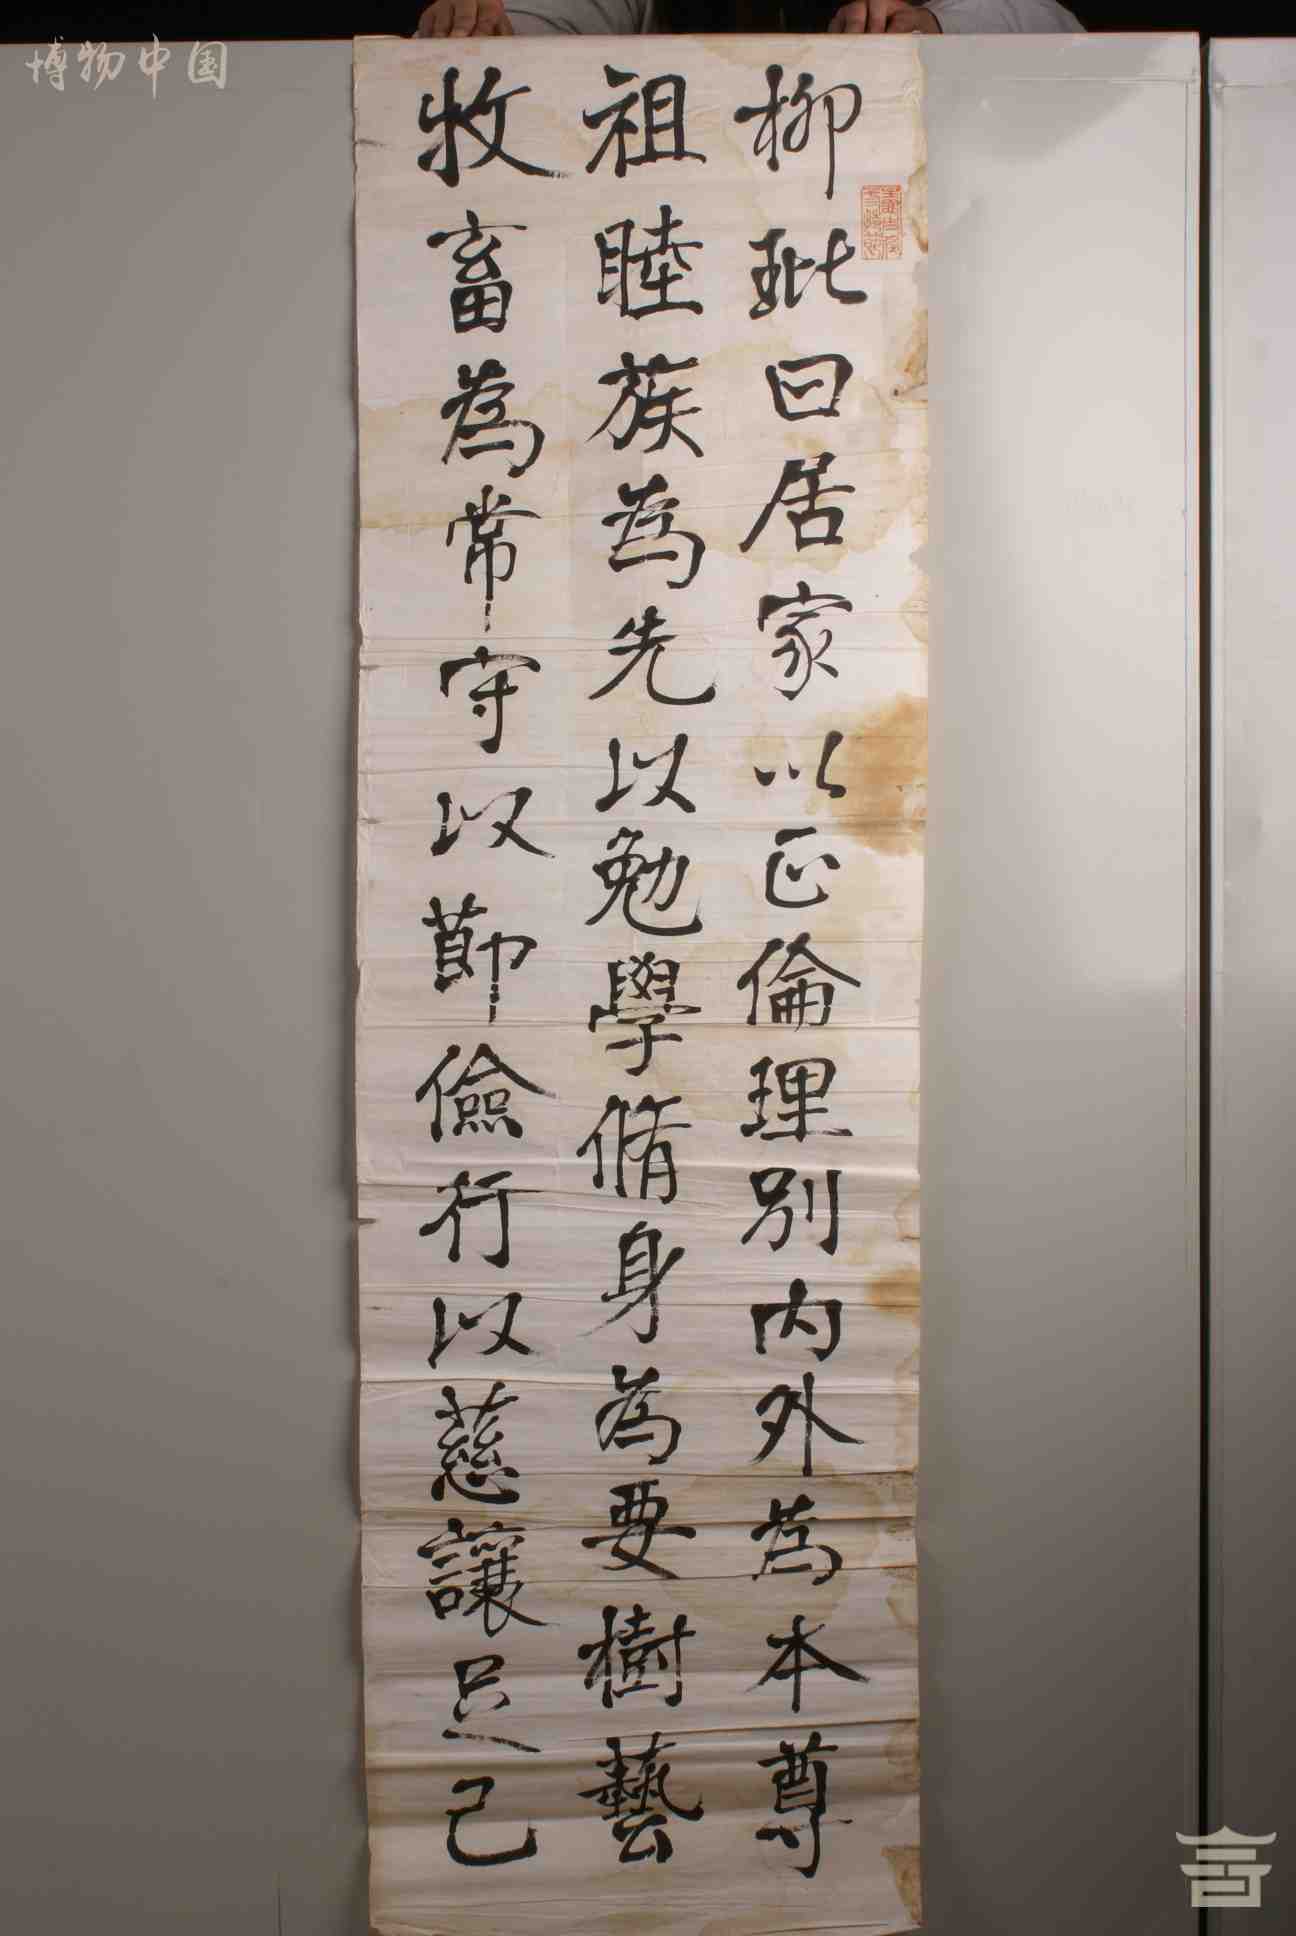 柳玭曰居家以正倫理別内外為本尊
祖睦族為先以勉學脩身為要樹藝
牧畜為常守以節儉行以慈讓足己
博物中国